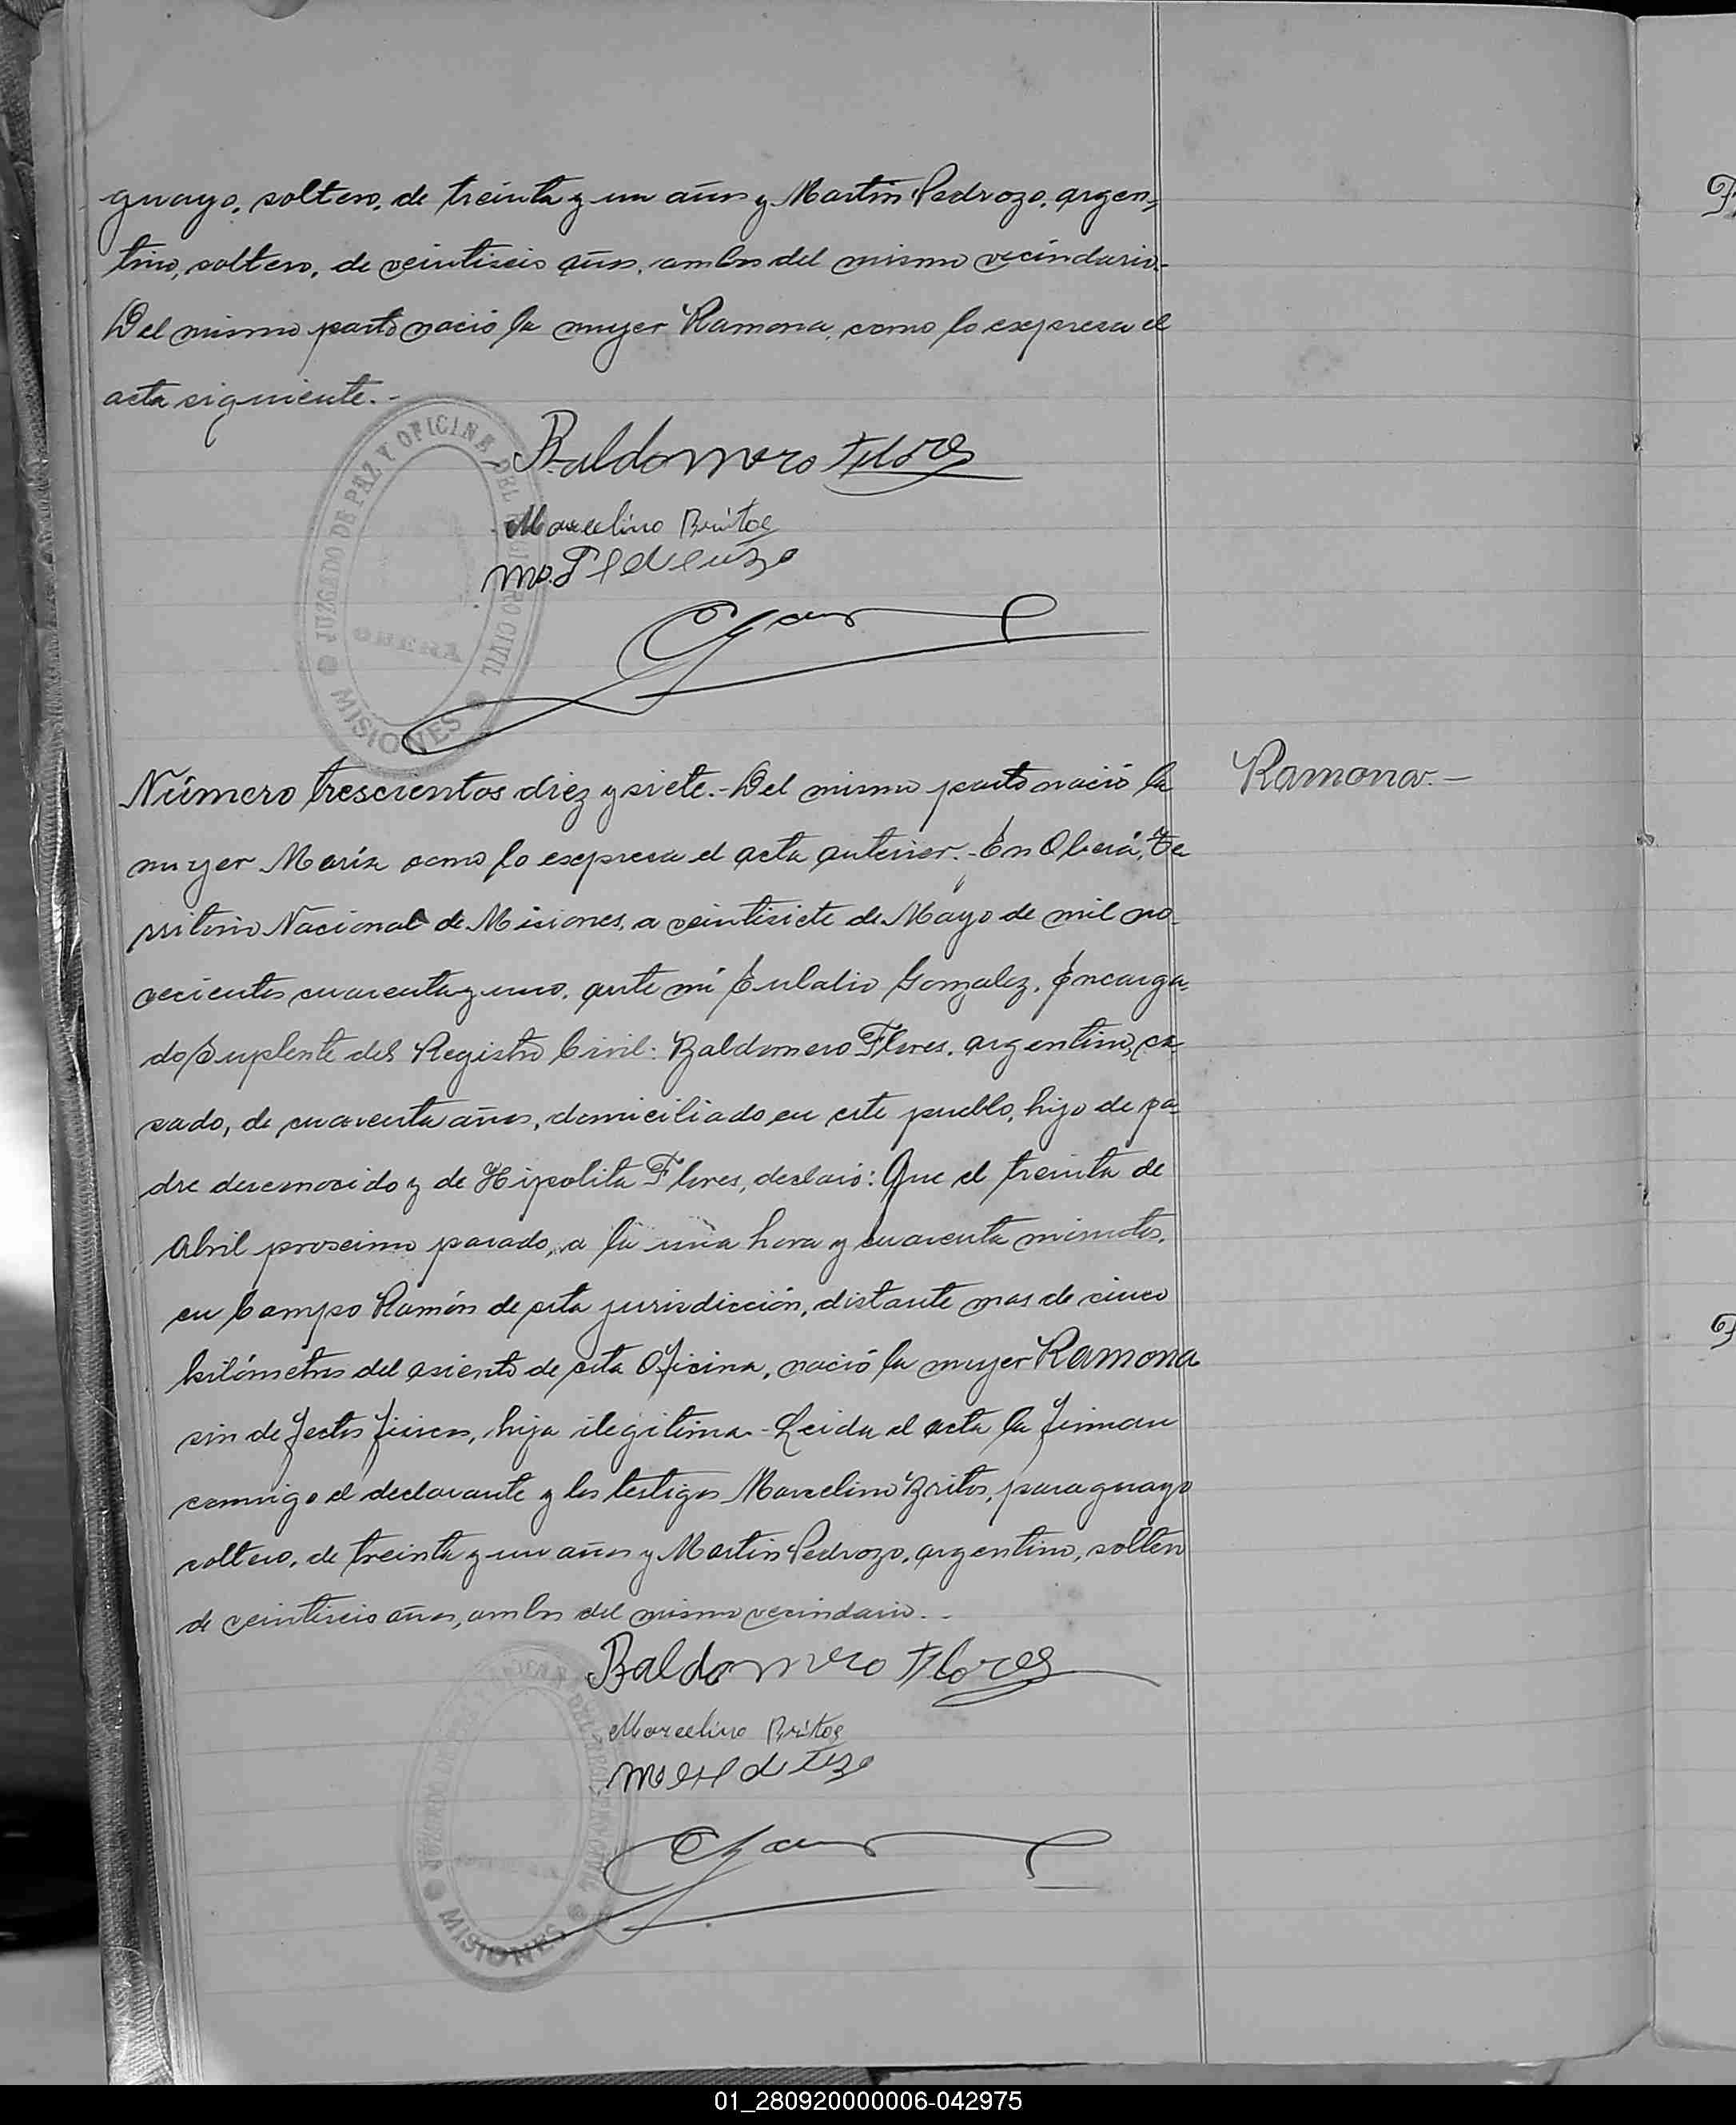 guayo, soltero, de treinta y un años y Martín Pedrozo, argen-
tino, soltero, de veintiseis años, ambos del mismo vecindario.-
Del mismo parto nació la mujer Ramona, como lo expresa el
acta siguiente.-
JUZGADO DE PAZ Y OFICINA DEL REGISTRO CIVIL
OBERA
MISIONES
Baldomero Flores
Marcelino Britos
Número trescientos diez y siete.- Del mismo parto nació la
Ramona.-
mujer María como lo expresa el acta anterior.- En Oberá, Te
rritorio Nacional de Misiones, a veintisiete de Mayo de mil no-
vecientos cuarenta y uno, ante mí Eulalio Gonzalez, Encarga-
do Suplente del Registro Civil: Baldomero Flores, argentino, ca-
sado, de cuarenta años, domiciliado en este pueblo, hijo de pa-
dre desconocido y de Hipolita Flores, declaró: Que el treinta de
Abril proximo pasado, a la una hora y cuarenta minutos,
en Campo Ramón de esta jurisdicción, distante mas de cinco
kilómetros del asiento de esta Oficina, nació la mujer Ramona
sin defectos físicos, hija ilegitima.- Leida el acta la firman
conmigo el declarante y los testigos Marcelino Britos, paraguayo
soltero, de treinta y un años y Martín Pedrozo, argentino, soltero
de veintiseis años, ambos del mismo vecindario.-
Baldomero Flores
Marcelino Britos
MISIONES
01_280920000006-042975